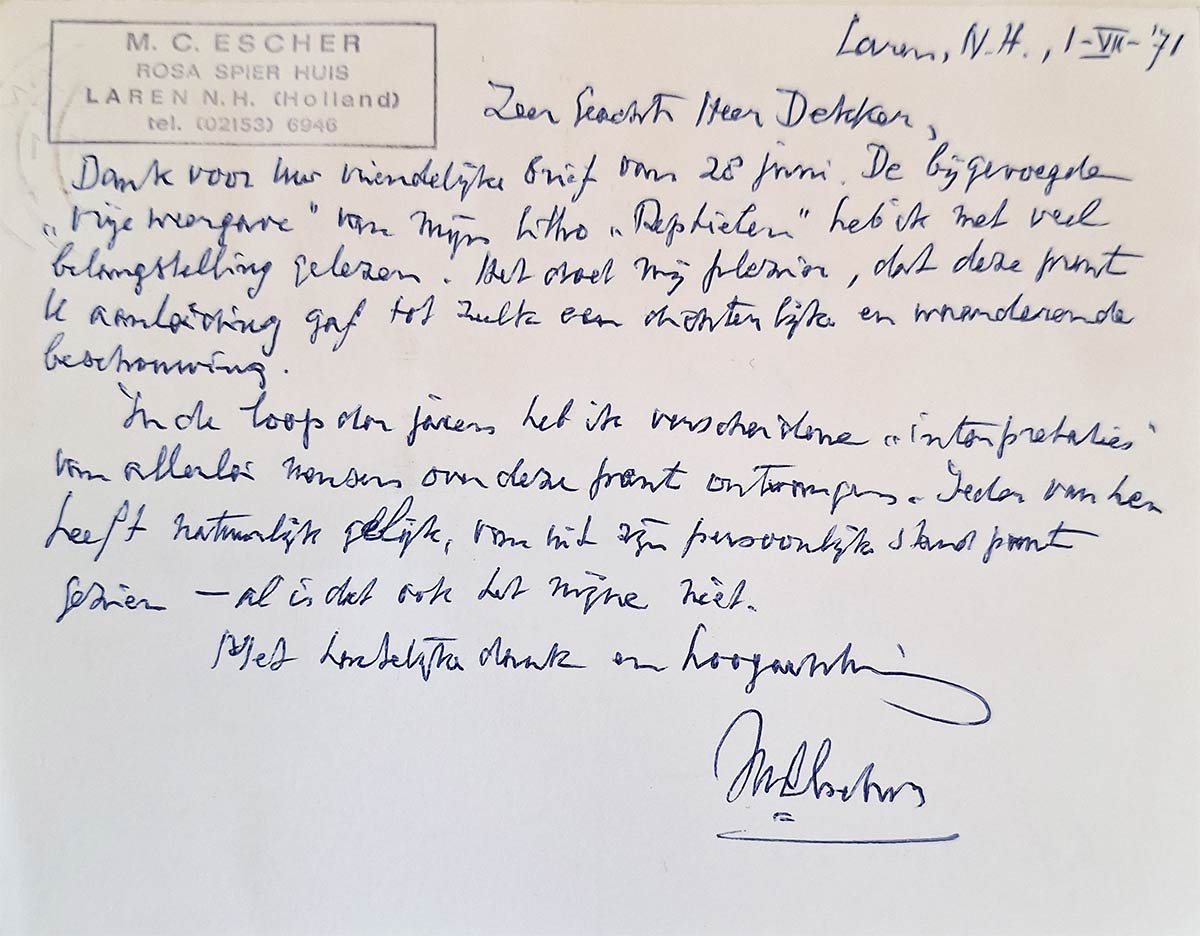 M. C. ESCHER
ROSA SPIER HUIS
LAREN N.H. (Holland)
tel. (02153) 6946
Laren, N.H., 1-VII-'71
Zeer Geachte Heer Dekker,
Dank voor Uw vriendelijke brief van 28 juni. De bijgevoegde
„vrije weergave" van mijn litho „Reptielen" heb ik met veel
belangstelling gelezen. Het doet mij plezier, dat deze prent
U aanleiding gaf tot zulk een dichterlijke en waarderende
beschouwing.
In de loop der jaren heb ik verscheidene „interpretaties"
van allerlei mensen over deze prent ontvangen. Ieder van hen
heeft natuurlijk gelijk, van uit zijn persoonlijk standpunt
gezien — al is dat ook het mijne niet.
Met hartelijke dank en hoogachting
MCEscher